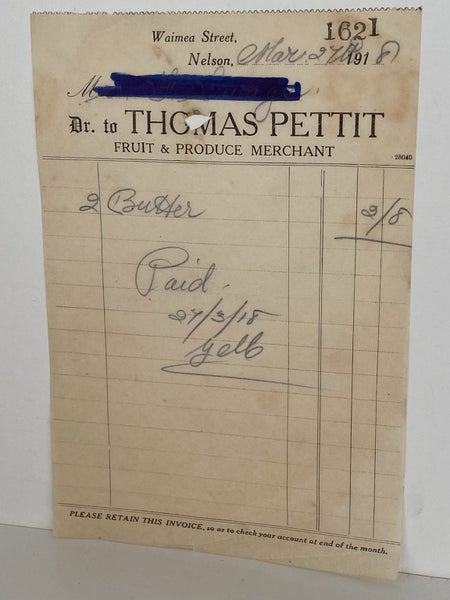 1621
Waimea Street,
Nelson, Mar 27th 1918
M
Dr. to THOMAS PETTIT
FRUIT & PRODUCE MERCHANT
28040
2 Butter 2/8
Paid.
27/3/18
PLEASE RETAIN THIS INVOICE, so as to check your account at end of the month.